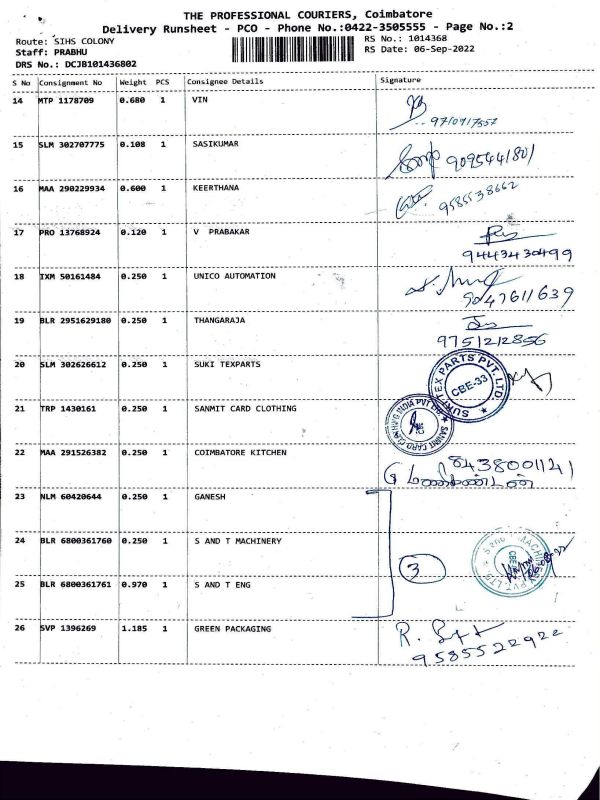 THE PROFESSIONAL COURIERS, Coimbatore
Delivery Runsheet - PCO - Phone No.:0422-3505555 - Page No.:2
Route: SIHS COLONY RS No.: 1014368
Staff: PRABHU RS Date: 06-Sep-2022
DRS No.: DCJB101436802
S No Consignment No Weight PCS Consignee Details Signature
14 MTP 1178709 0.680 1 VIN
9710917557
15 SLM 302707775 0.108 1 SASIKUMAR
9095441801
16 MAA 290229934 0.600 1 KEERTHANA
9585538662
17 PRO 13768924 0.120 1 V PRABAKAR
9443430499
18 IXM 50161484 0.250 1 UNICO AUTOMATION
9047611639
19 BLR 2951629180 0.250 1 THANGARAJA
9751212856
20 SLM 302626612 0.250 1 SUKI TEXPARTS
SUKI TEX PARTS PVT. LTD. CBE-33
21 TRP 1430161 0.250 1 SANMIT CARD CLOTHING
SANMIT CARD CLOTHING INDIA PVT LTD
22 MAA 291526382 0.250 1 COIMBATORE KITCHEN
8438001121
மணிகண்டன்
23 NLM 60420644 0.250 1 GANESH
24 BLR 6800361760 0.250 1 S AND T MACHINERY
3
S AND T MACHINERY PVT LTD CBE
25 BLR 6800361761 0.970 1 S AND T ENG
26 SVP 1396269 1.185 1 GREEN PACKAGING
9585522922